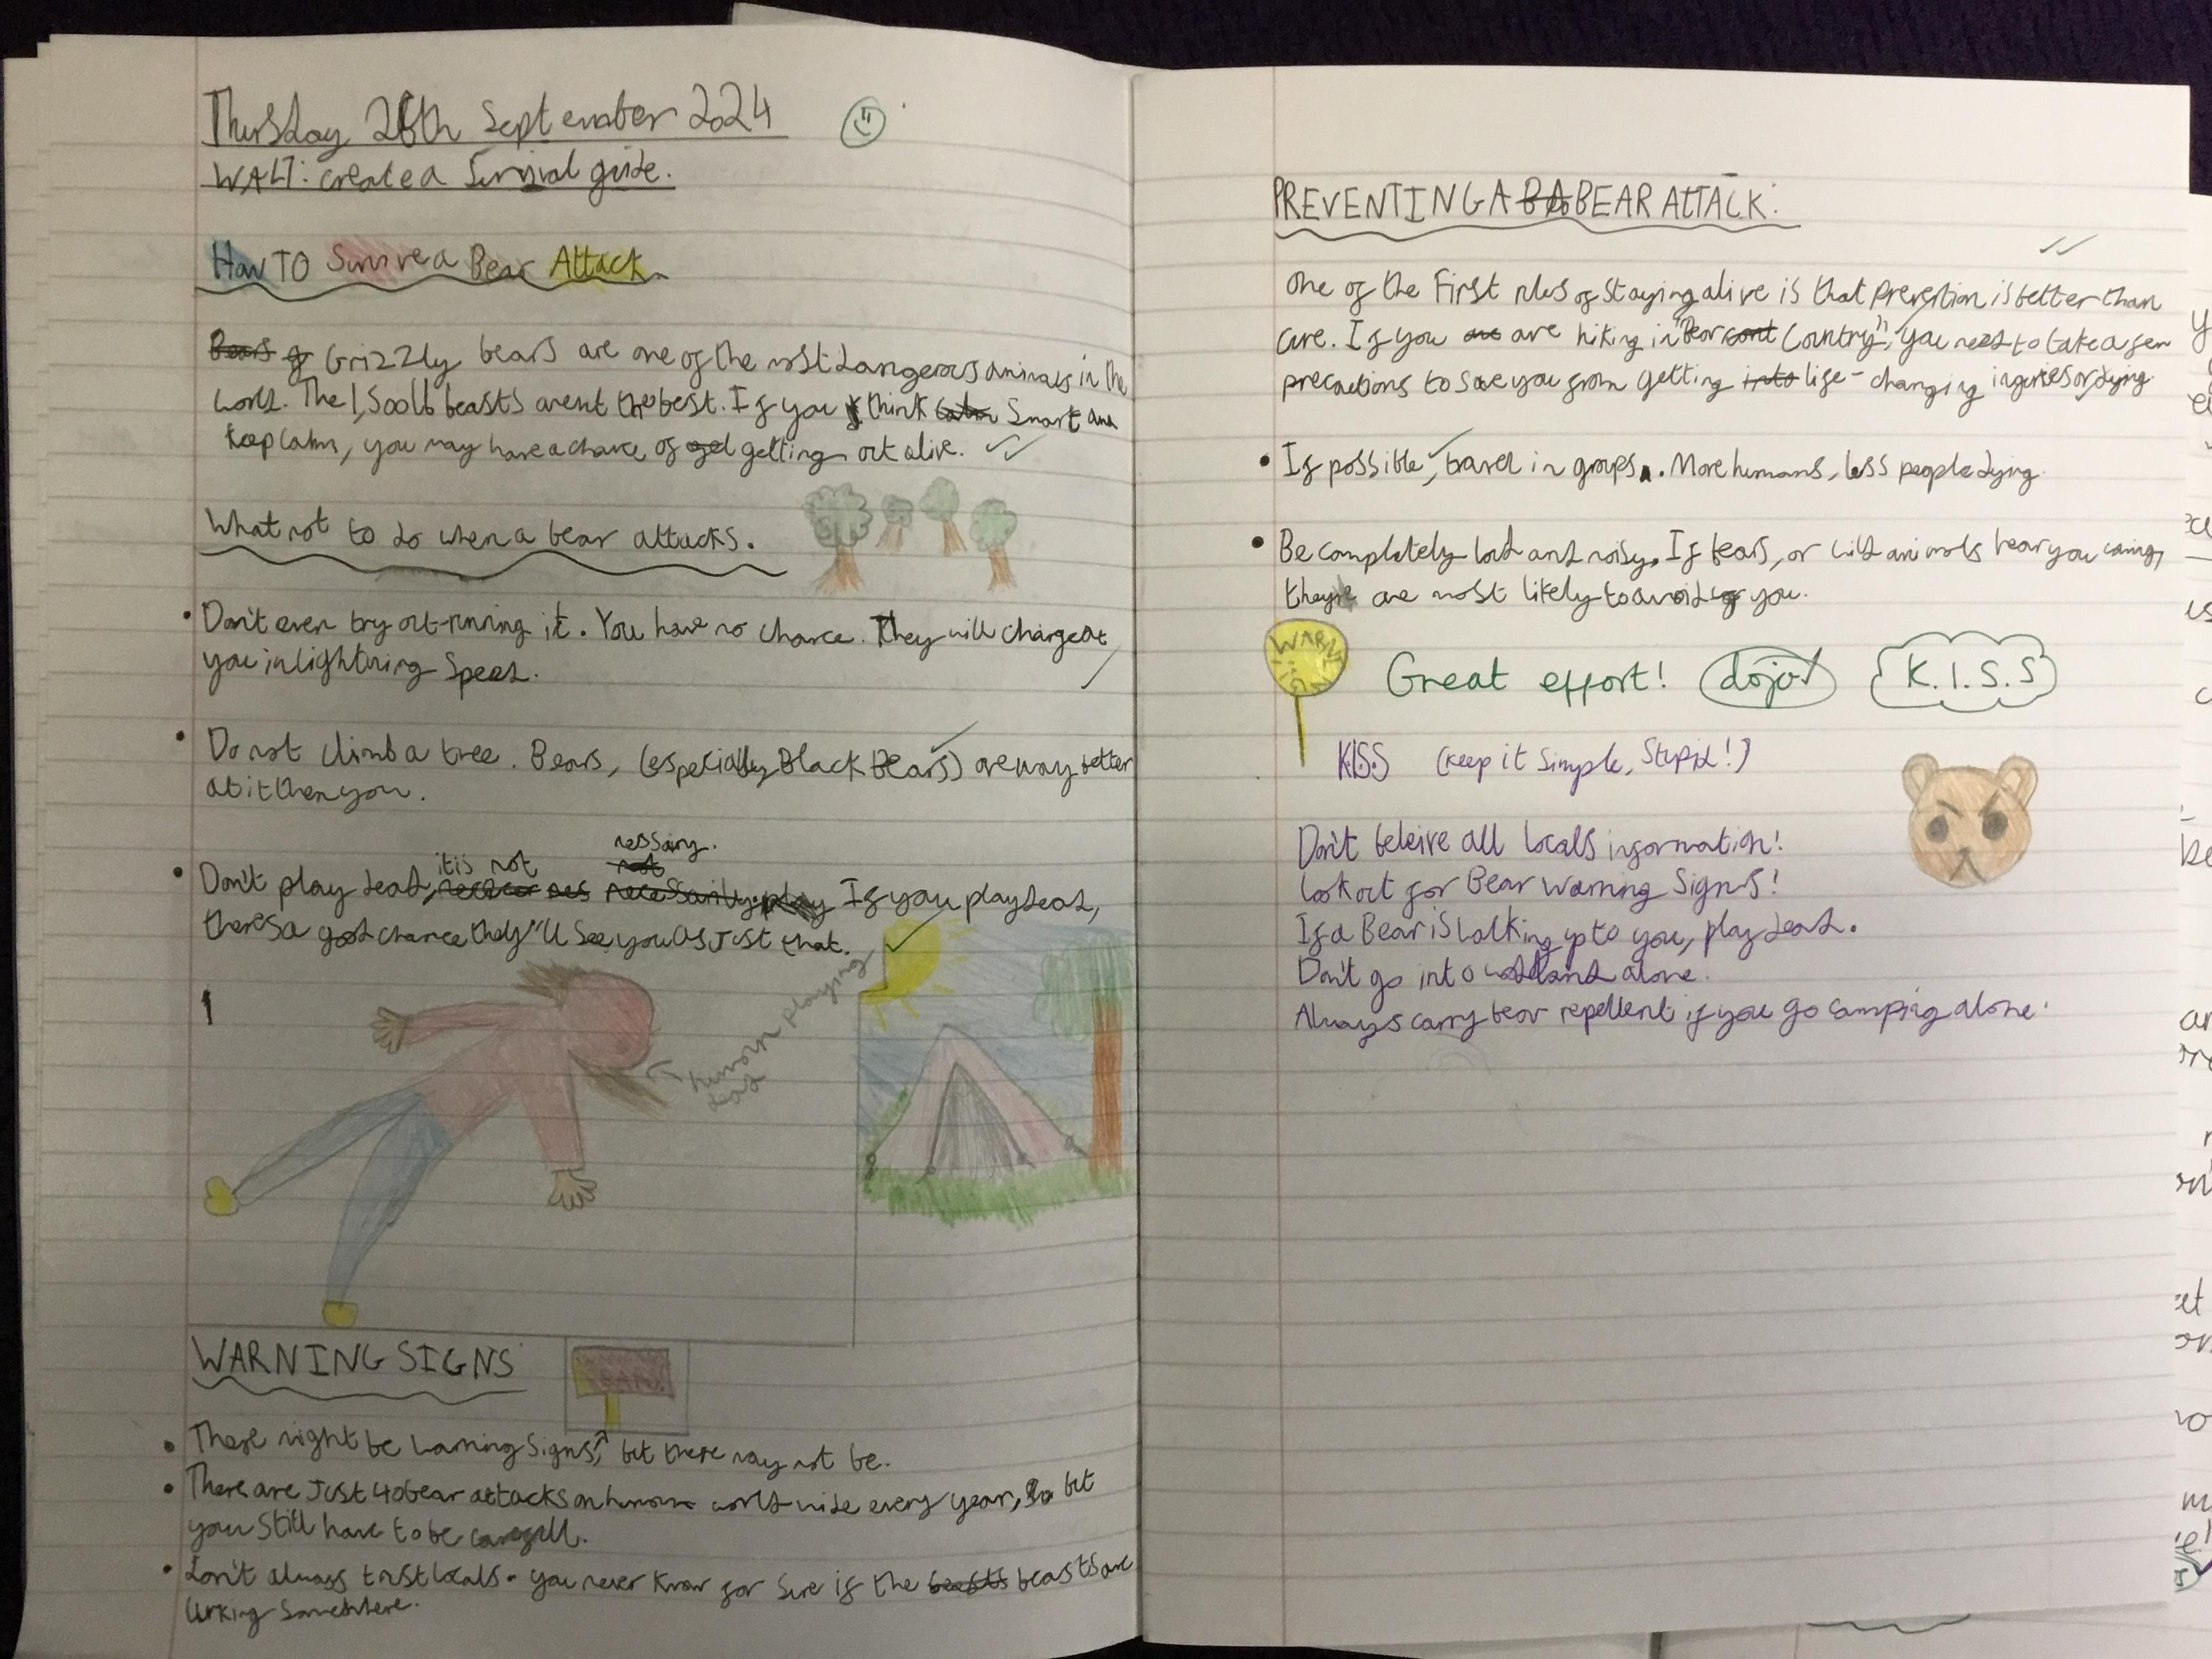 Thursday 26th September 2024
WALT: create a Survival guide.
How TO Survive a Bear Attack
Bears g Grizzly bears are one of the most dangerous animals in the
world. The 1,500lb beasts arent the best. If you think calm Smart and
keep calm, you may have a chance of getting out alive.
What not to do when a bear attacks.
Don't even try out-running it. You have no chance. They will charge at
you in lightning Speed.
Do not climb a tree. Bears, (especially Black Bears) are way better
at it then you.
nessairy.
it is not not
Don't play dead, necessarily play If you play dead,
there's a good chance they'll see you as just that.
1
human playing
dead
WARNING SIGNS
BEARS
There might be warning signs, but there may not be.
There are Just 40 bear attacks on humans world wide every year, So but
you still have to be carefull.
Don't always trust locals. you never know for sure if the beasts beasts are
lurking Somewhere.
PREVENTING A BA BEAR ATTACK:
One of the First rules of staying alive is that prevention is better than
cure. If you are are hiking in "Bear cont Country", you need to take a few
precautions to save you from getting into life-changing injuries or dying.
If possible, travel in groups. More humans, less people dying.
Be completely loud and noisy. If bears, or wild animals hear you coming,
they are most likely to avoid you.
WARNING
Great effort! dojo K.I.S.S
KISS (Keep it Simple, Stupid!)
Don't beleive all locals information!
Look out for Bear Warning Signs!
If a Bear is walking up to you, play dead.
Don't go into woodland alone.
Always carry bear repellent if you go camping alone.